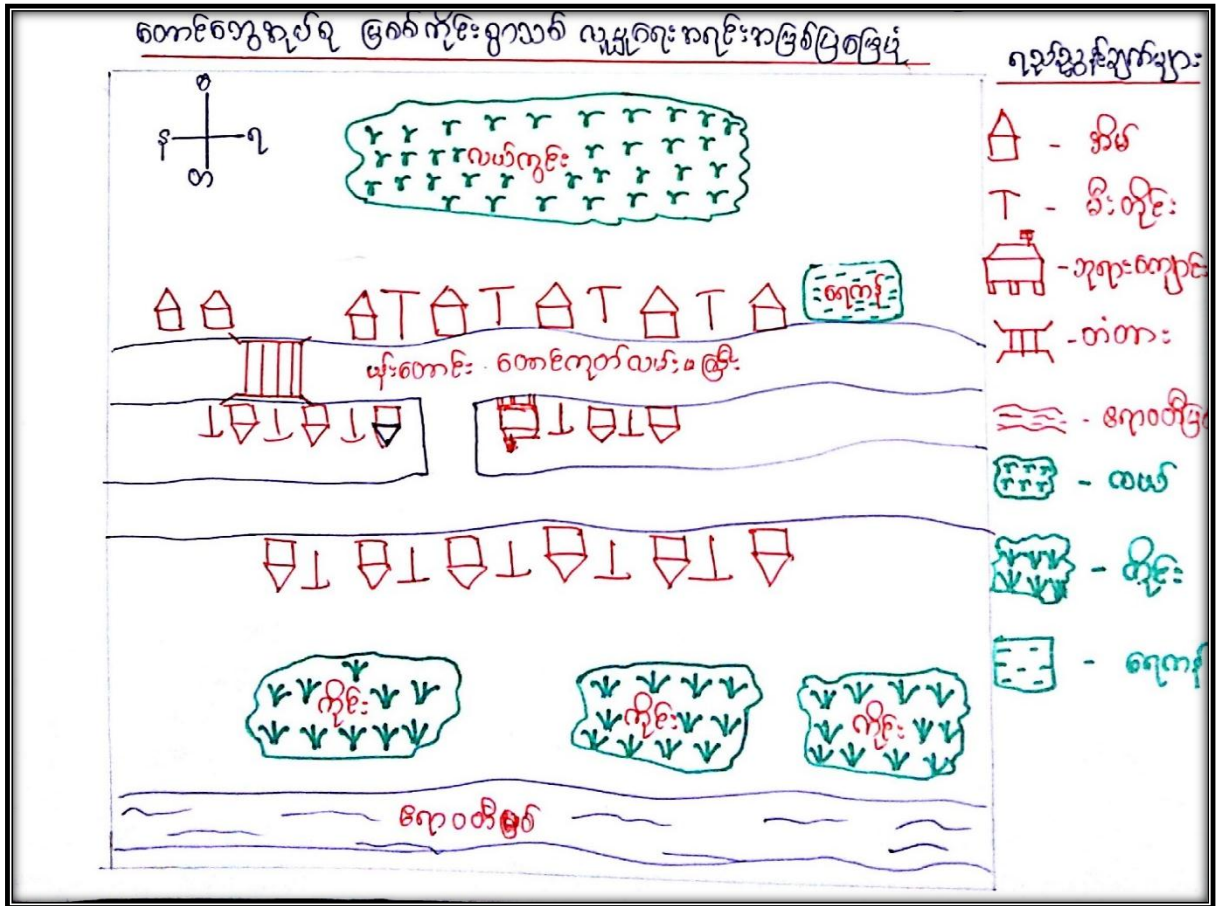 တောင်ဘွေအုပ်စု မြစ်ကိုင်းရွာသစ် လူမှုရေးအရင်းအမြစ်ပြမြေပုံ
ရည်ညွှန်းချက်များ
မ
န
ရ
တ
လယ်ကွင်း
ရေကန်
ပန်းတောင်း - တောင်ကုတ်လမ်းမကြီး
ကိုင်း
ကိုင်း
ကိုင်း
ဧရာဝတီမြစ်
- အိမ်
- မီးတိုင်
- ဘုရားကျောင်း
- တံတား
- ဧရာဝတီမြစ်
- လယ်
- ကိုင်း
- ရေကန်